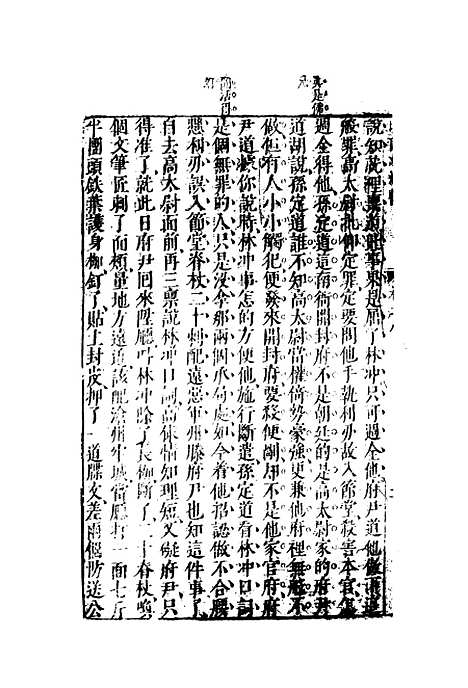 真是佛
兒
說知就裡稟府尹事果是屈了林冲只可週全他府尹道他做下這
般罪高太尉批仰定罪定要問他手執利刃故入節堂殺害本官怎
週全得他孫定道這南衙開封府不是朝廷的是高太尉家的府尹
道胡說孫定道誰不知高太尉當權倚勢豪強更兼他府裡無般不
做但有人小小觸犯便發來開封府要殺便殺要剮便剮却不是他家官府府
尹道據你說時林冲事怎的方便他施行斷遣孫定道看林冲口詞
是個無罪的人只是沒拿那兩個承局處如今着他招認做不合腰
懸利刃誤入節堂脊杖二十刺配遠惡軍州滕府尹也知這件事了
自去高太尉面前再三稟說林冲口詞高俅情知理短又礙府尹只
得准了就此日府尹回來陞廳叫林冲除了長枷斷了二十脊杖喚
個文筆匠刺了面頰量地方遠近該配滄州牢城當廳打一面七斤
半團頭鐵葉護身枷釘了貼上封皮押了一道牒文差兩個防送公